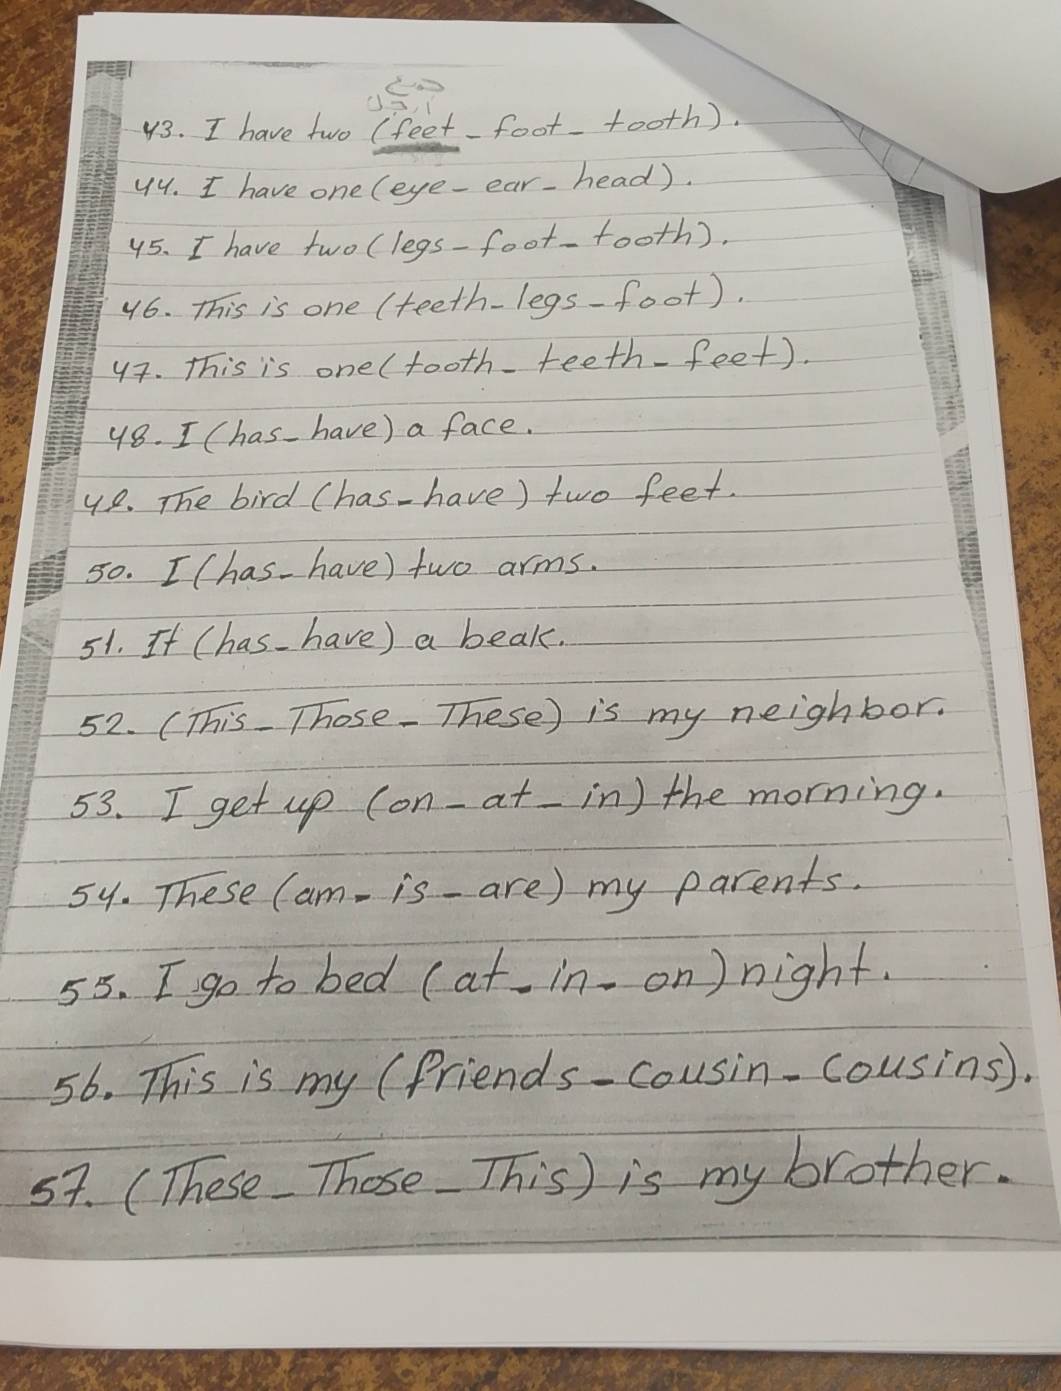 جمع
أرجل
43. I have two (feet - foot - tooth).
44. I have one (eye - ear - head).
45. I have two (legs - foot - tooth).
46. This is one (teeth - legs - foot).
47. This is one (tooth - teeth - feet).
48. I (has - have) a face.
49. The bird (has - have) two feet.
50. I (has - have) two arms.
51. It (has - have) a beak.
52. (This - Those - These) is my neighbor.
53. I get up (on - at - in) the morning.
54. These (am - is - are) my parents.
55. I go to bed (at - in - on) night.
56. This is my (friends - cousin - cousins).
57. (These - Those - This) is my brother.